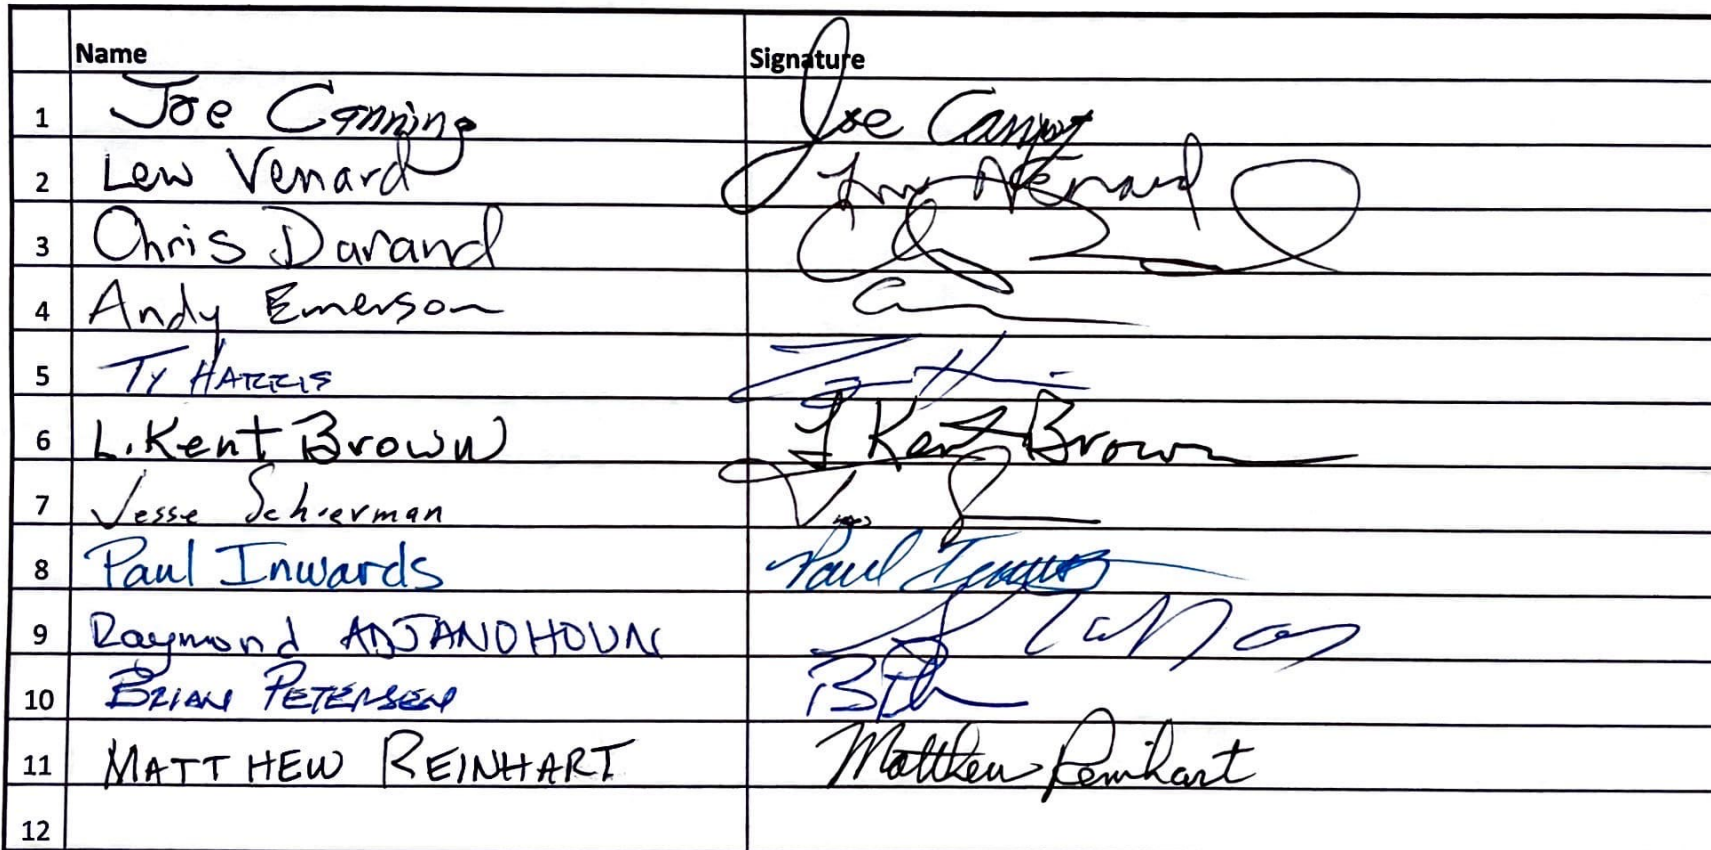 Name Signature
1 Joe Canning Joe Canning
2 Lew Venard Lew Venard
3 Chris Darand
4 Andy Emerson
5 Ty HARRIS
6 L. Kent Brown L Kent Brown
7 Jesse Schierman
8 Paul Inwards Paul Inwards
9 Raymond ADJANOHOUN
10 BRIAN PETERSEN
11 MATTHEW REINHART Matthew Reinhart
12